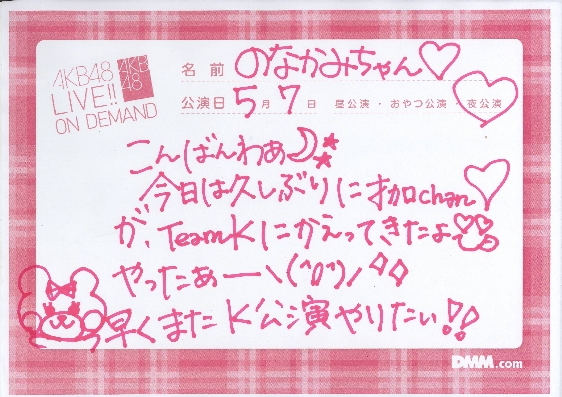 AKB48
LIVE!!
ON DEMAND
AKB
48
名前 のなかみちゃん♡
公演日 5月7日 昼公演・おやつ公演・夜公演
こんばんわぁ
今日は久しぶりに才加chan♡
が、TeamKにかえってきたよ
やったぁーヽ(^o^)ノ
早くまたK公演やりたい!!
DMM.com